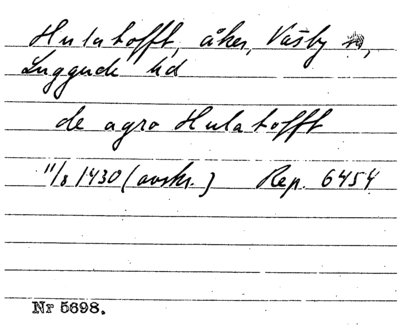 Hulatofft, åker, Väsby sn,
Luggude hd
de agro Hulatofft
11/8 1430 (avskr.) Rep. 6454
Nr 5698.